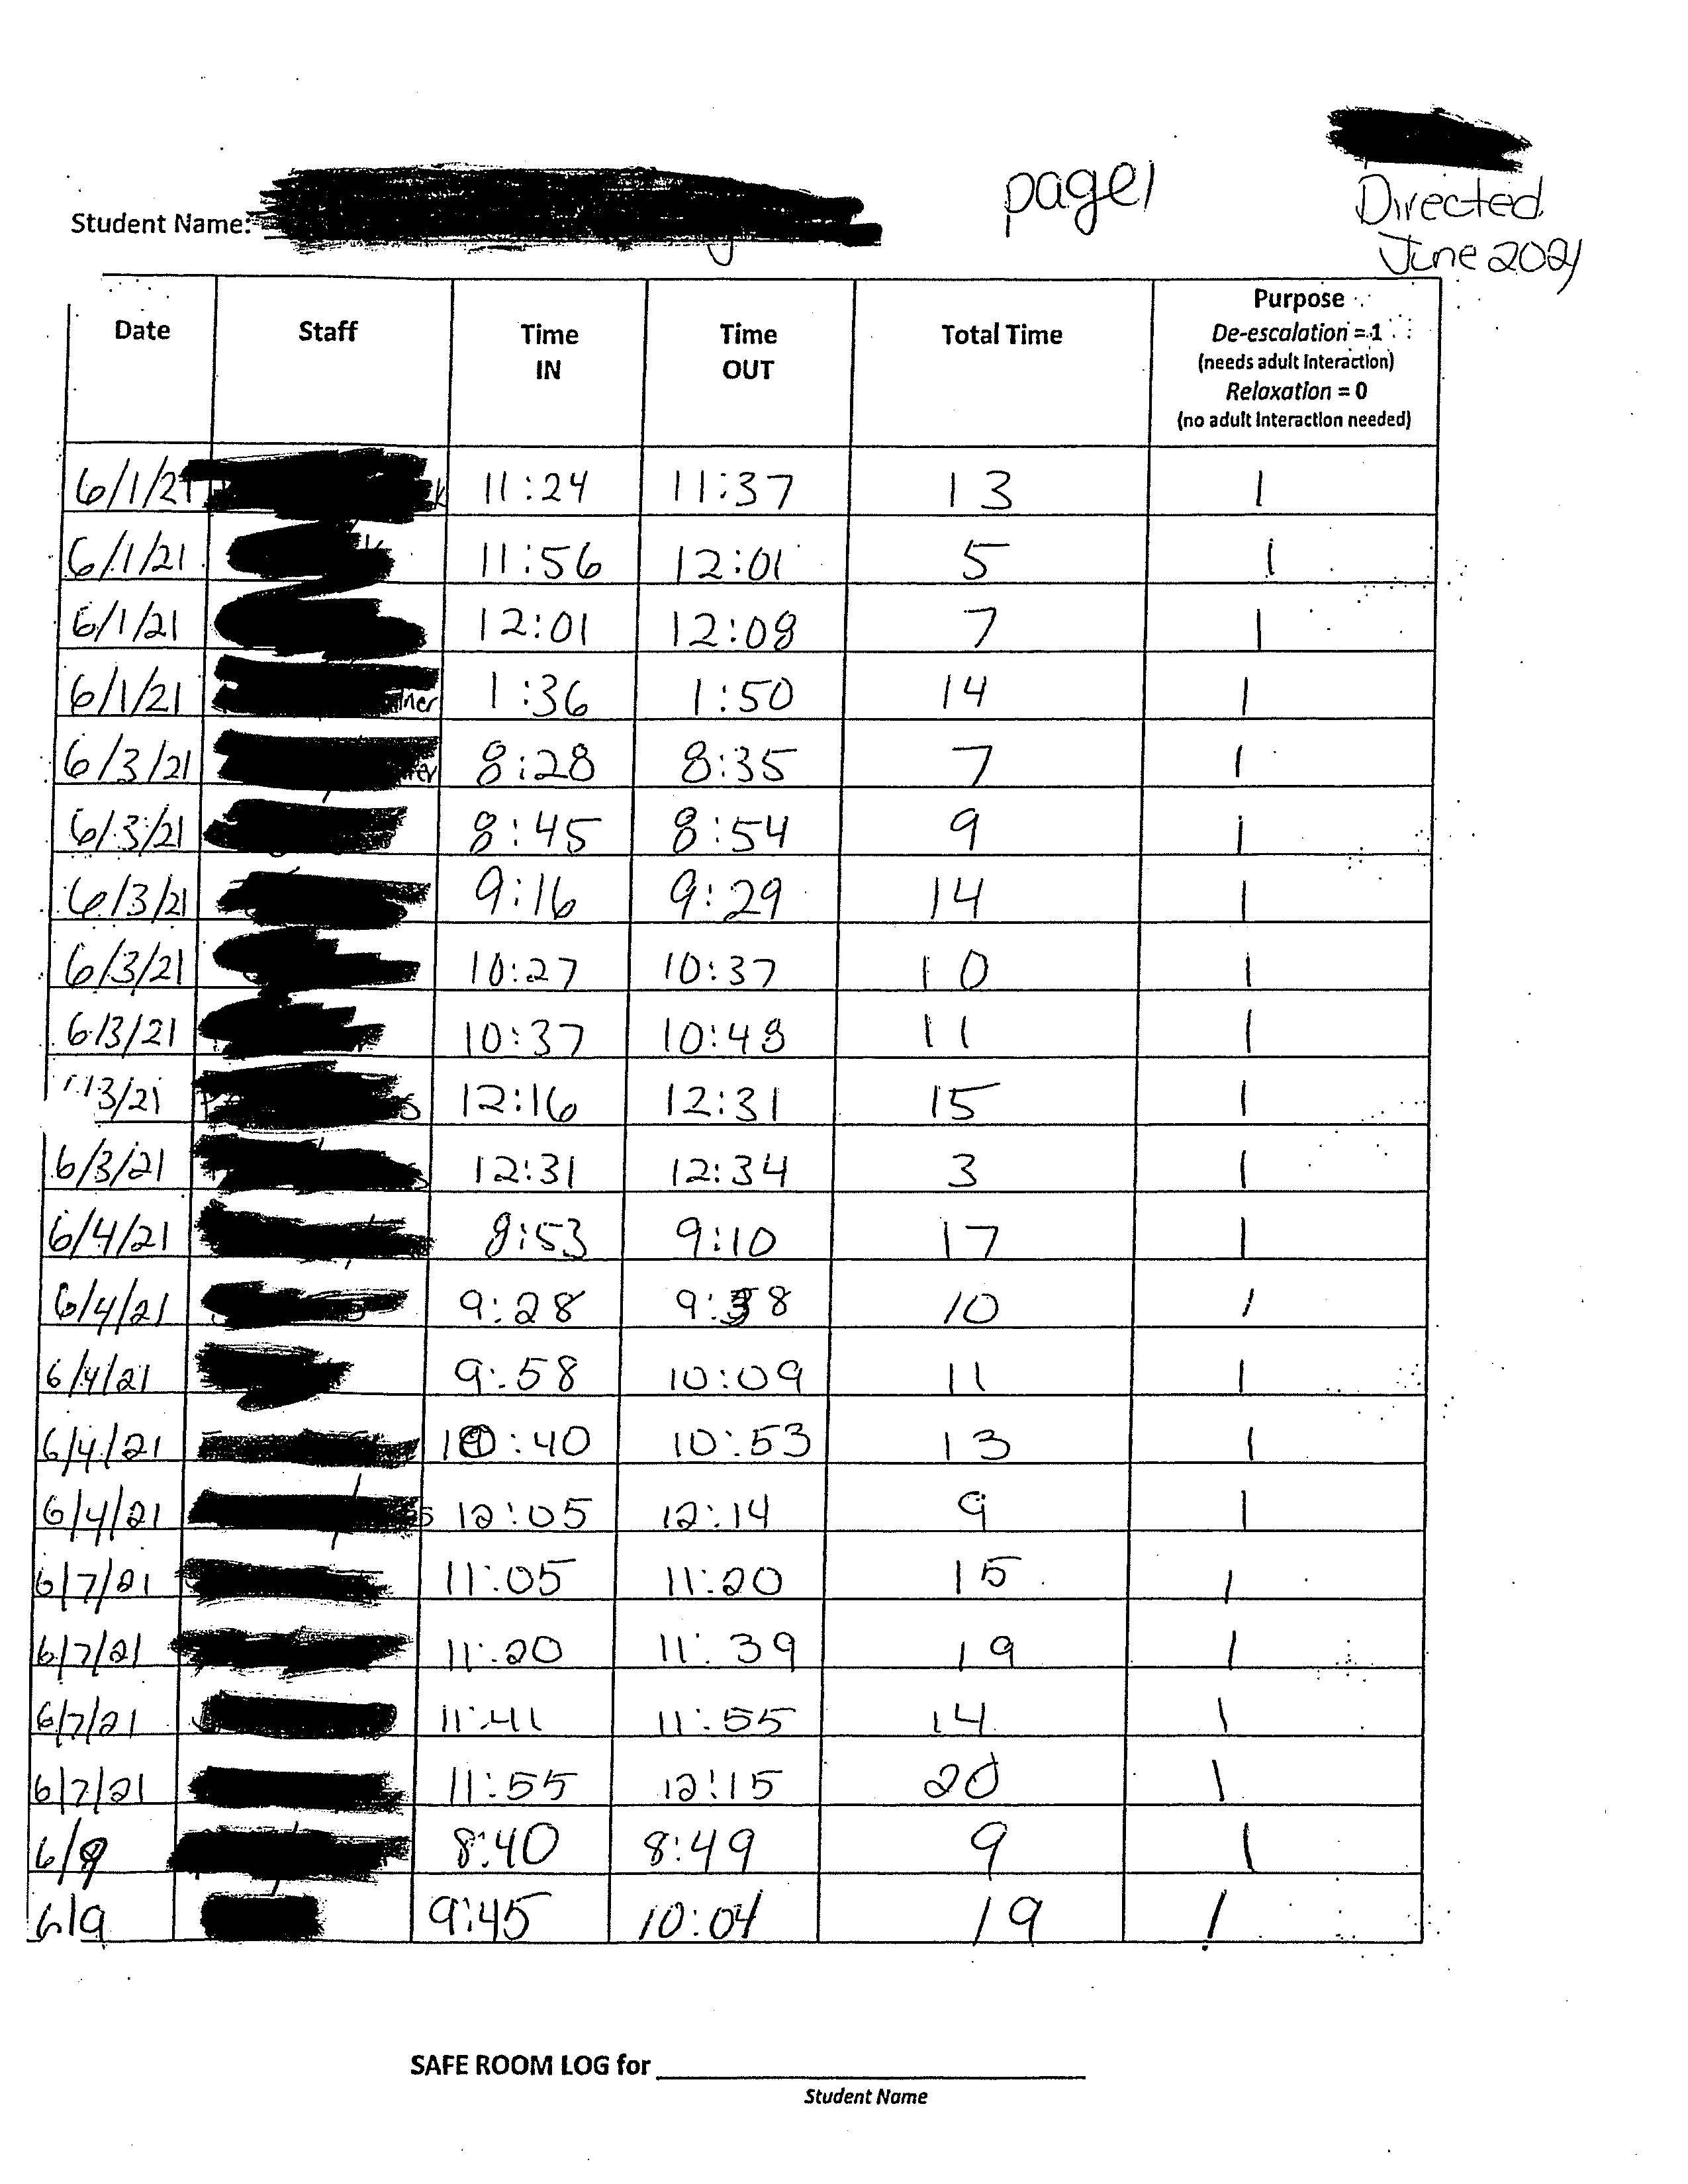 page 1
Directed
June 2021
Student Name:
Date Staff Time IN Time OUT Total Time Purpose
De-escalation = 1
(needs adult interaction)
Relaxation = 0
(no adult interaction needed)
6/1/21 11:24 11:37 13 1
6/1/21 11:56 12:01 5 1
6/1/21 12:01 12:08 7 1
6/1/21 1:36 1:50 14 1
6/3/21 8:28 8:35 7 1
6/3/21 8:45 8:54 9 1
6/3/21 9:16 9:29 14 1
6/3/21 10:27 10:37 10 1
6/3/21 10:37 10:48 11 1
3/21 12:16 12:31 15 1
6/3/21 12:31 12:34 3 1
6/4/21 8:53 9:10 17 1
6/4/21 9:28 9:38 10 1
6/4/21 9:58 10:09 11 1
6/4/21 10:40 10:53 13 1
6/4/21 12:05 12:14 9 1
6/7/21 11:05 11:20 15 1
6/7/21 11:20 11:39 19 1
6/7/21 11:41 11:55 14 1
6/7/21 11:55 12:15 20 1
6/9 8:40 8:49 9 1
6/9 9:45 10:04 19 1
SAFE ROOM LOG for
Student Name